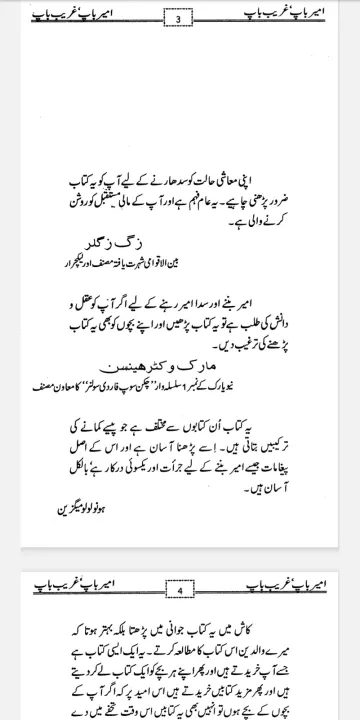 امیر باپ، غریب باپ 3 امیر باپ، غریب باپ
اپنی معاشی حالت کو سدھارنے کے لیے آپ کو یہ کتاب
ضرور پڑھنی چاہیے۔ یہ عام فہم ہے اور آپ کے مالی مستقبل کو روشن
کرنے والی ہے۔
زگ زگلر
بین الاقوامی شہرت یافتہ مصنف اور لیکچرار
امیر بننے اور سدا امیر رہنے کے لیے اگر آپ کو عقل و
دانش کی طلب ہے تو یہ کتاب پڑھیں اور اپنے بچوں کو بھی یہ کتاب
پڑھنے کی ترغیب دیں۔
مارک وکٹر ھینسن
نیویارک کے نمبر 1 سلسلہ وار ”چکن سوپ فار دی سولز“ کا معاون مصنف
یہ کتاب اُن کتابوں سے مختلف ہے جو پیسے کمانے کی
ترکیبیں بتاتی ہیں۔ اِسے پڑھنا آسان ہے اور اس کے اصل
پیغامات جیسے امیر بننے کے لیے جرأت اور یکسوئی درکار ہے‘ بالکل
آسان ہیں۔
ہونولولو میگزین
امیر باپ، غریب باپ 4 امیر باپ، غریب باپ
کاش میں یہ کتاب جوانی میں پڑھتا بلکہ بہتر ہوتا کہ
میرے والدین اس کتاب کا مطالعہ کرتے۔ یہ ایک ایسی کتاب ہے
جسے آپ خریدتے ہیں اور پھر اپنے ہر بچے کو ایک کتاب لے کر دیتے
ہیں اور پھر مزید کتابیں خریدتے ہیں اس امید پر کہ اگر آپ کے
بچوں کے بچے ہوں تو انہیں بھی یہ کتابیں اس وقت تحفے میں دے